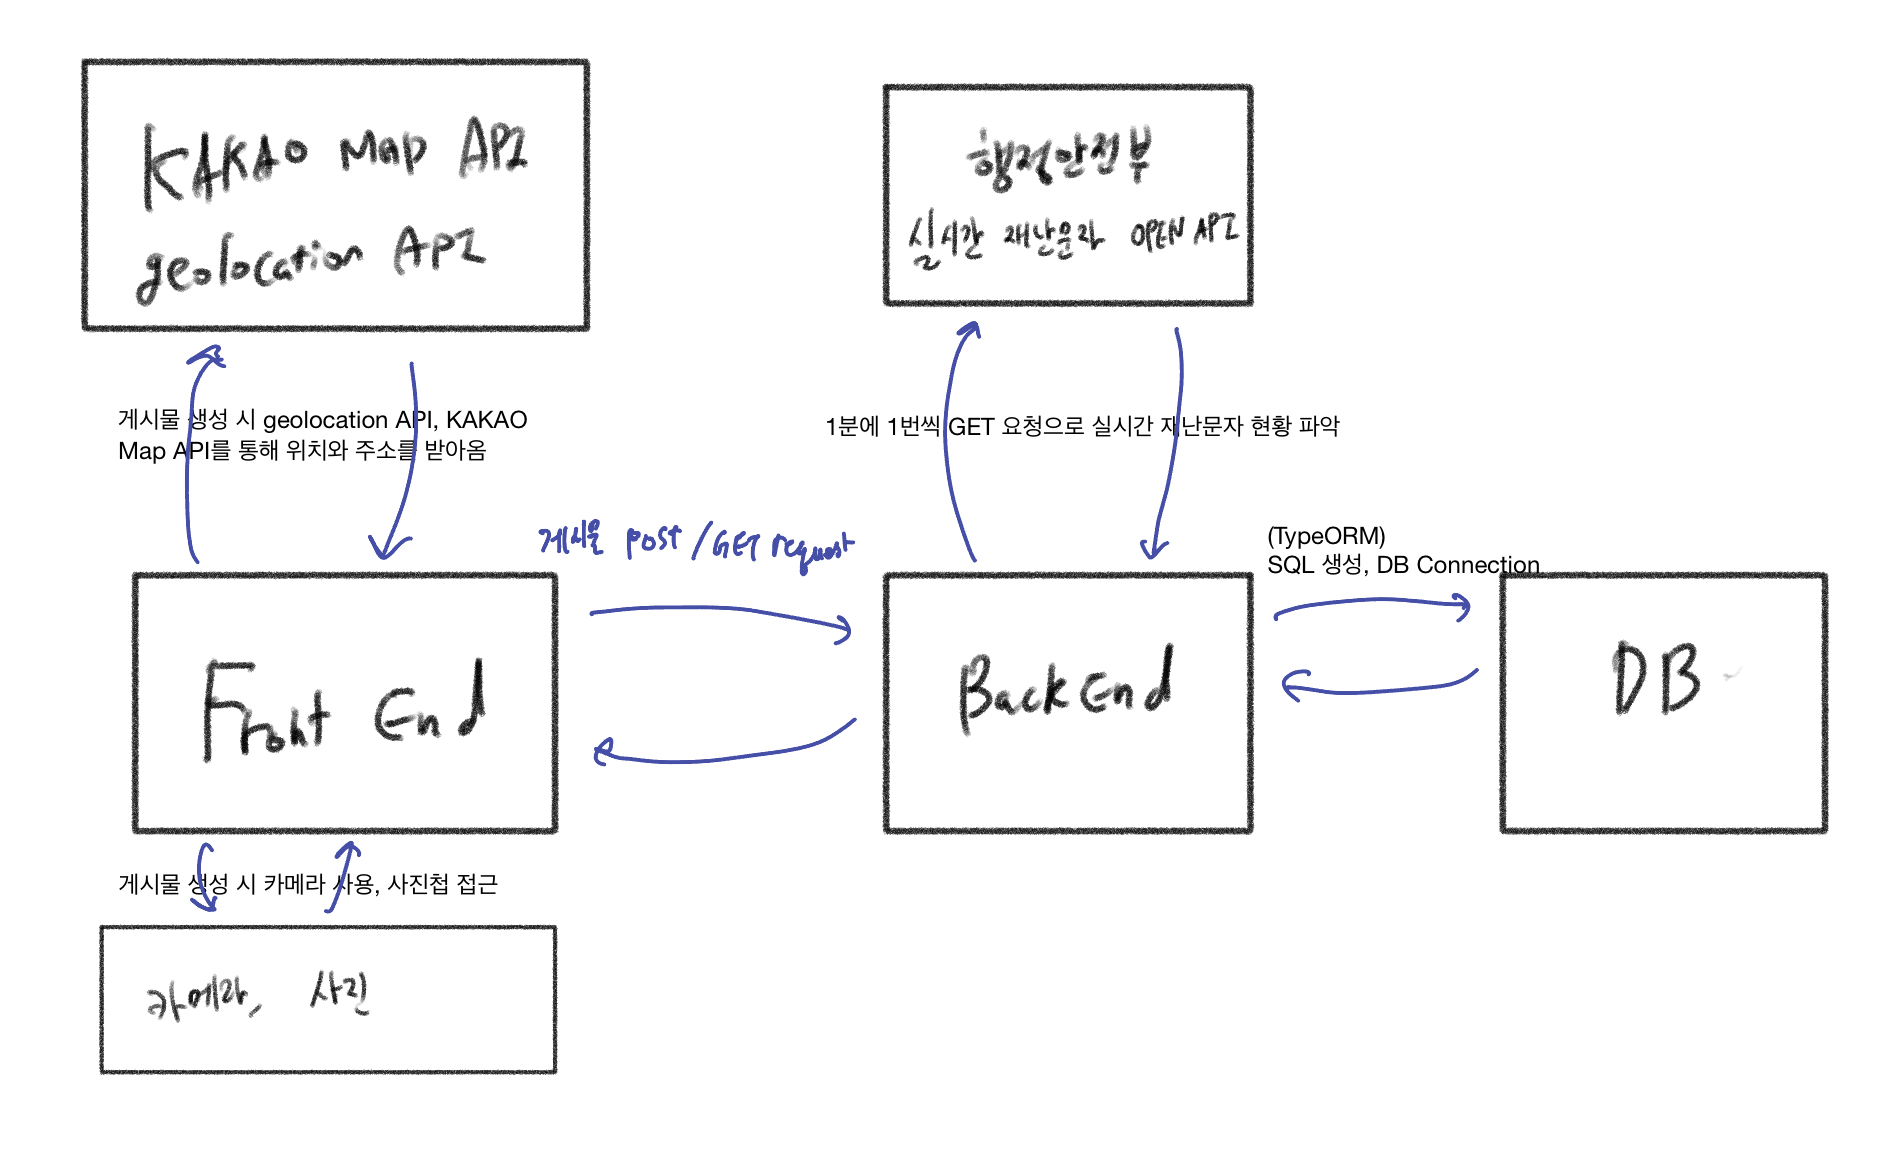 KAKAO Map API
geolocation API
행정안전부
실시간 재난문자 OPEN API
게시물 생성 시 geolocation API, KAKAO
Map API를 통해 위치와 주소를 받아옴
1분에 1번씩 GET 요청으로 실시간 재난문자 현황 파악
게시물 post/GET request
(TypeORM)
SQL 생성, DB Connection
Front End
Back End
DB
게시물 생성 시 카메라 사용, 사진첩 접근
카메라, 사진